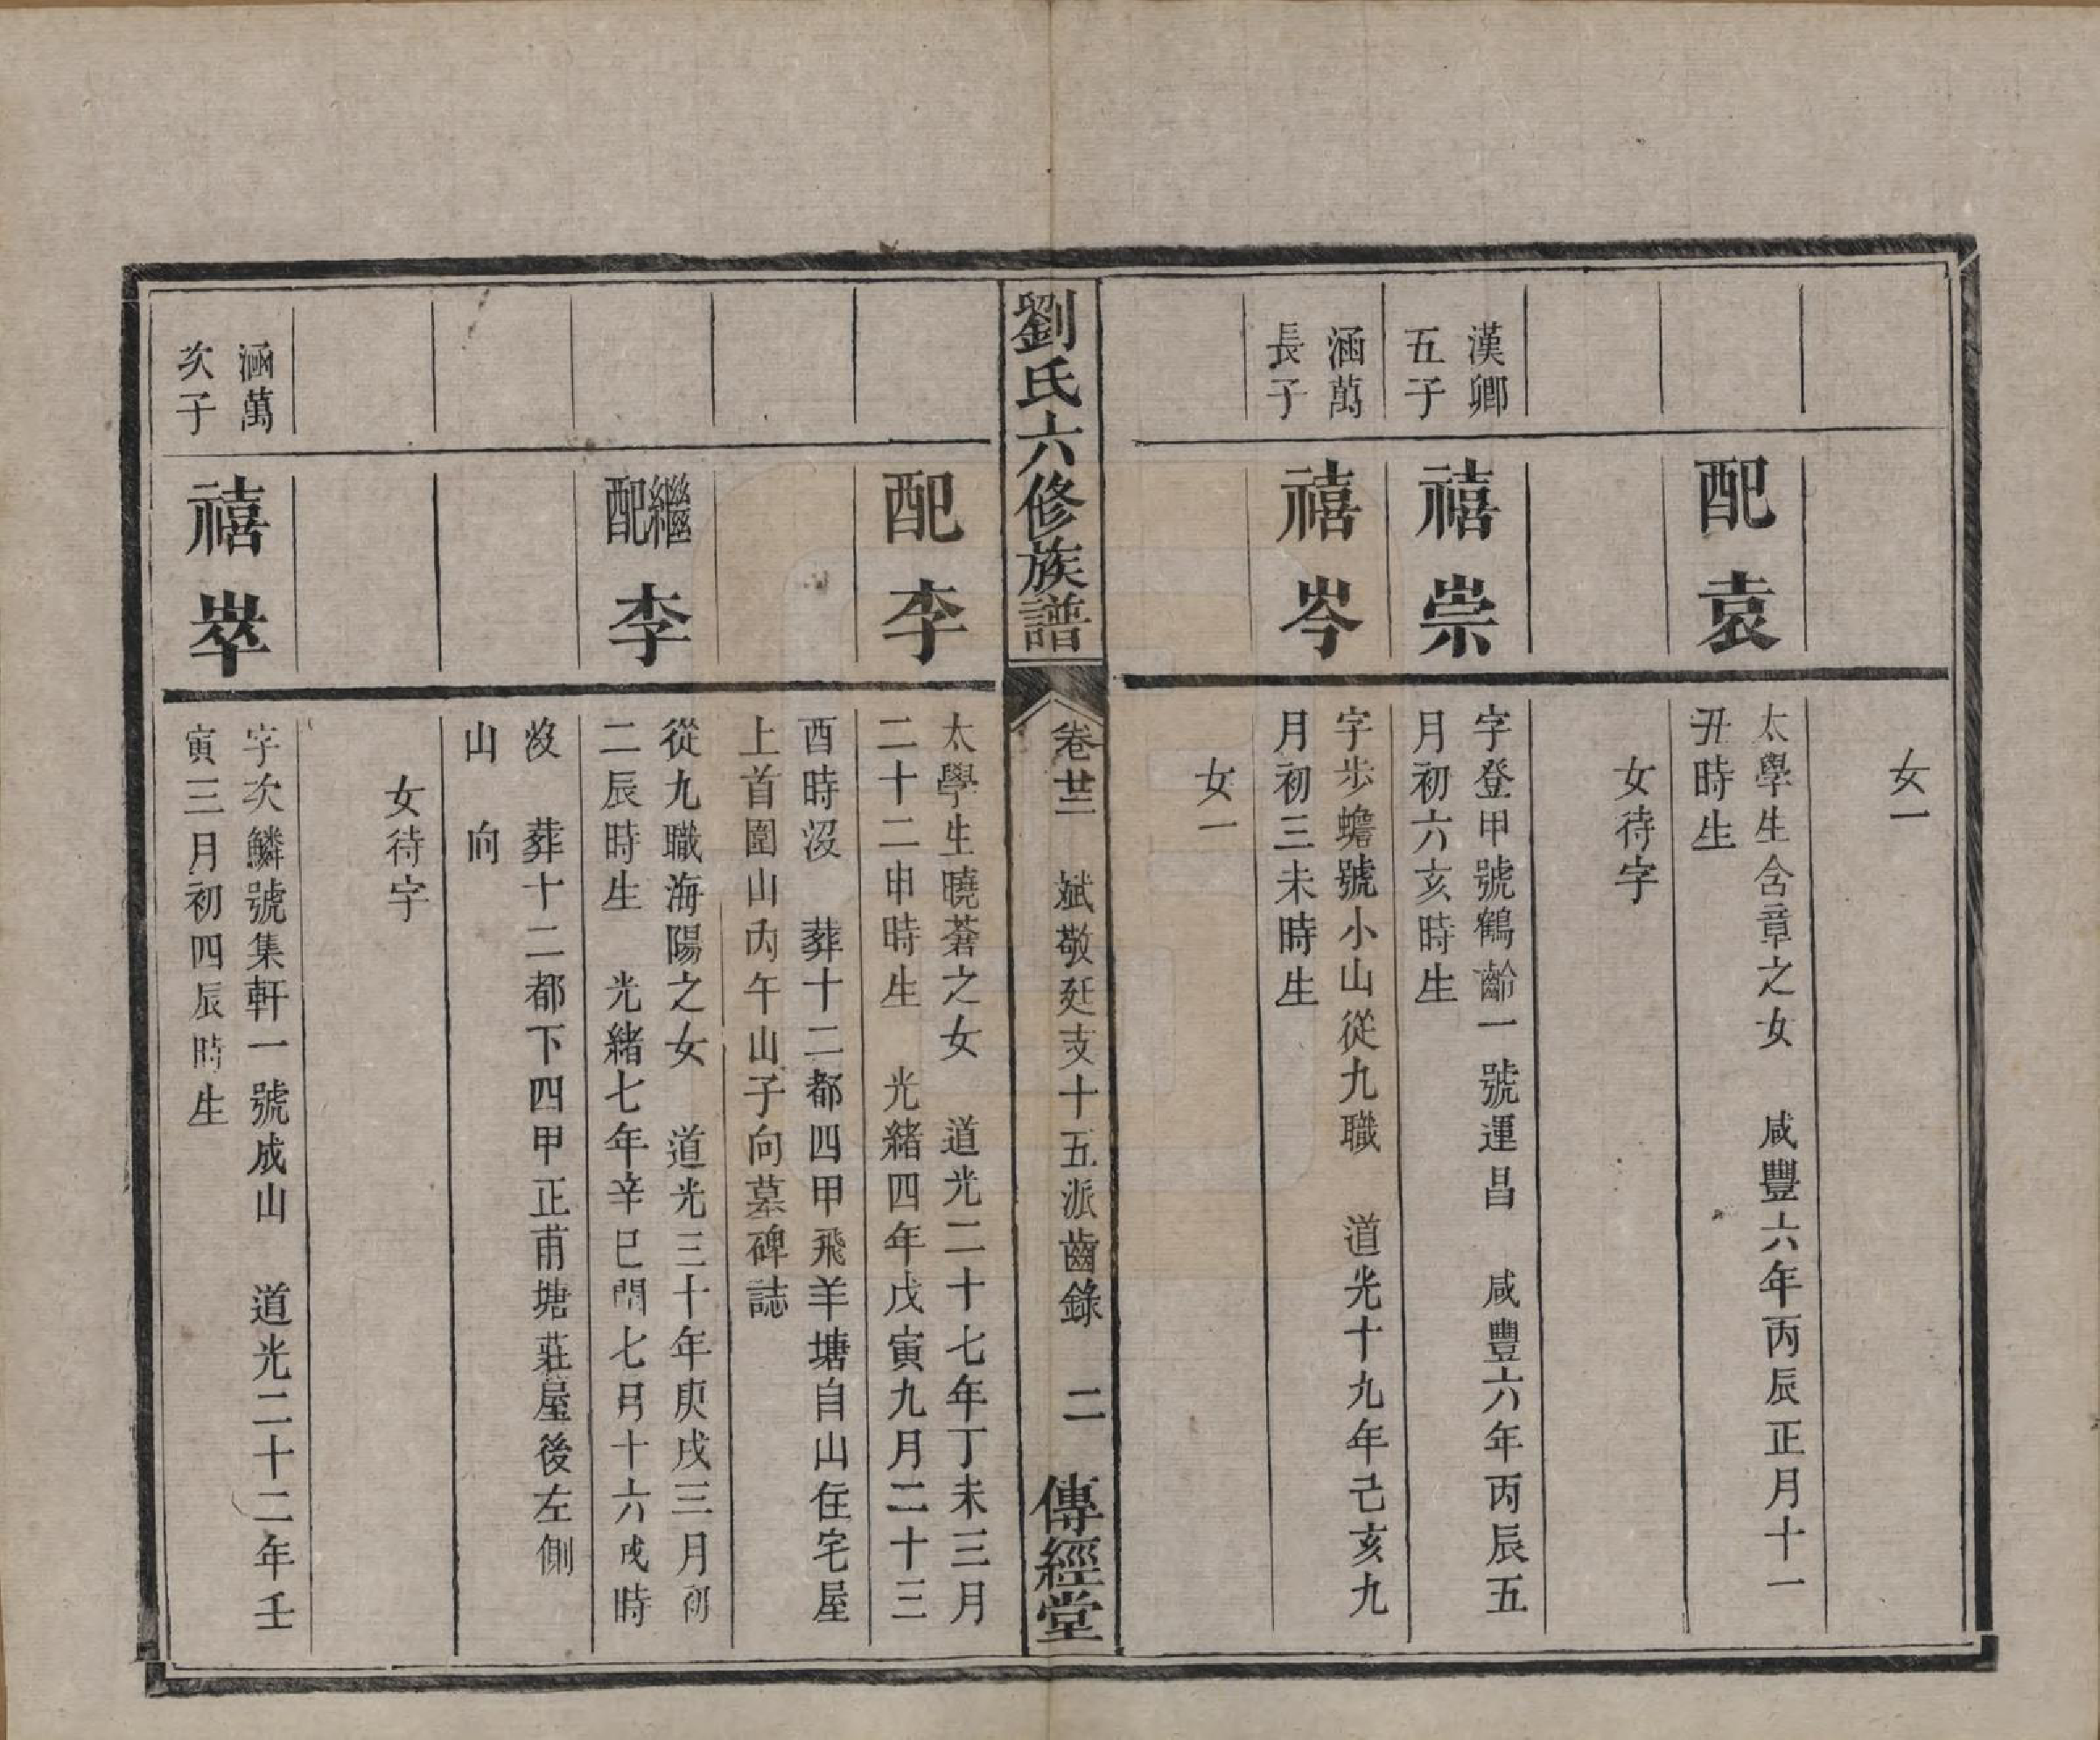 女一
配袁
太學生含章之女　咸豐六年丙辰正月十一
丑時生
女待字
漢卿
五子
禧崇
字登甲號鶴齡一號運昌　咸豐六年丙辰五
月初六亥時生
涵萬
長子
禧岑
字步蟾號小山從九職　道光十九年己亥九
月初三未時生
女一
劉氏六修族譜
卷廿三　斌敬延支十五派齒錄　二
傳經堂
配李
太學生曉蒼之女　道光二十七年丁未三月
二十二申時生　光緒四年戊寅九月二十三
酉時沒　葬十二都四甲飛羊塘自山住宅屋
上首圍山丙午山子向墓碑誌
繼配李
從九職海陽之女　道光三十年庚戌三月初
二辰時生　光緒七年辛巳閏七月十六戌時
沒　葬十二都下四甲正甫塘莊屋後左側
山　向
女待字
涵萬
次子
禧崒
字次鱗號集軒一號成山　道光二十二年壬
寅三月初四辰時生